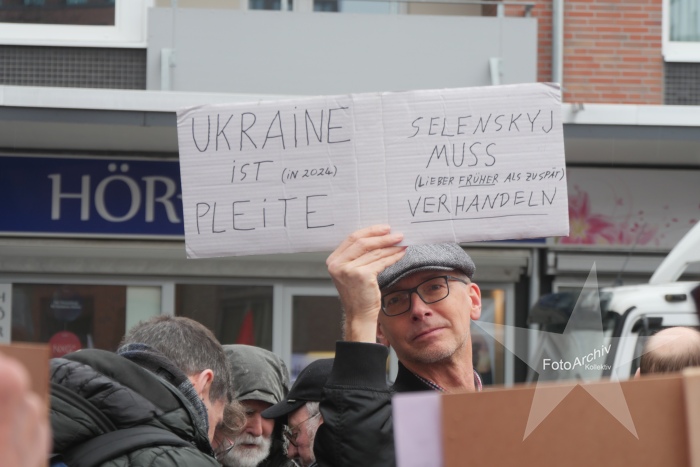 UKRAINE
iST (iN 2024)
PLEiTE
SELENSKYJ
MUSS
(LiEBER FRÜHER ALS ZU SPÄT)
VERHANDELN
HÖR
FotoArchiv
Kollektiv